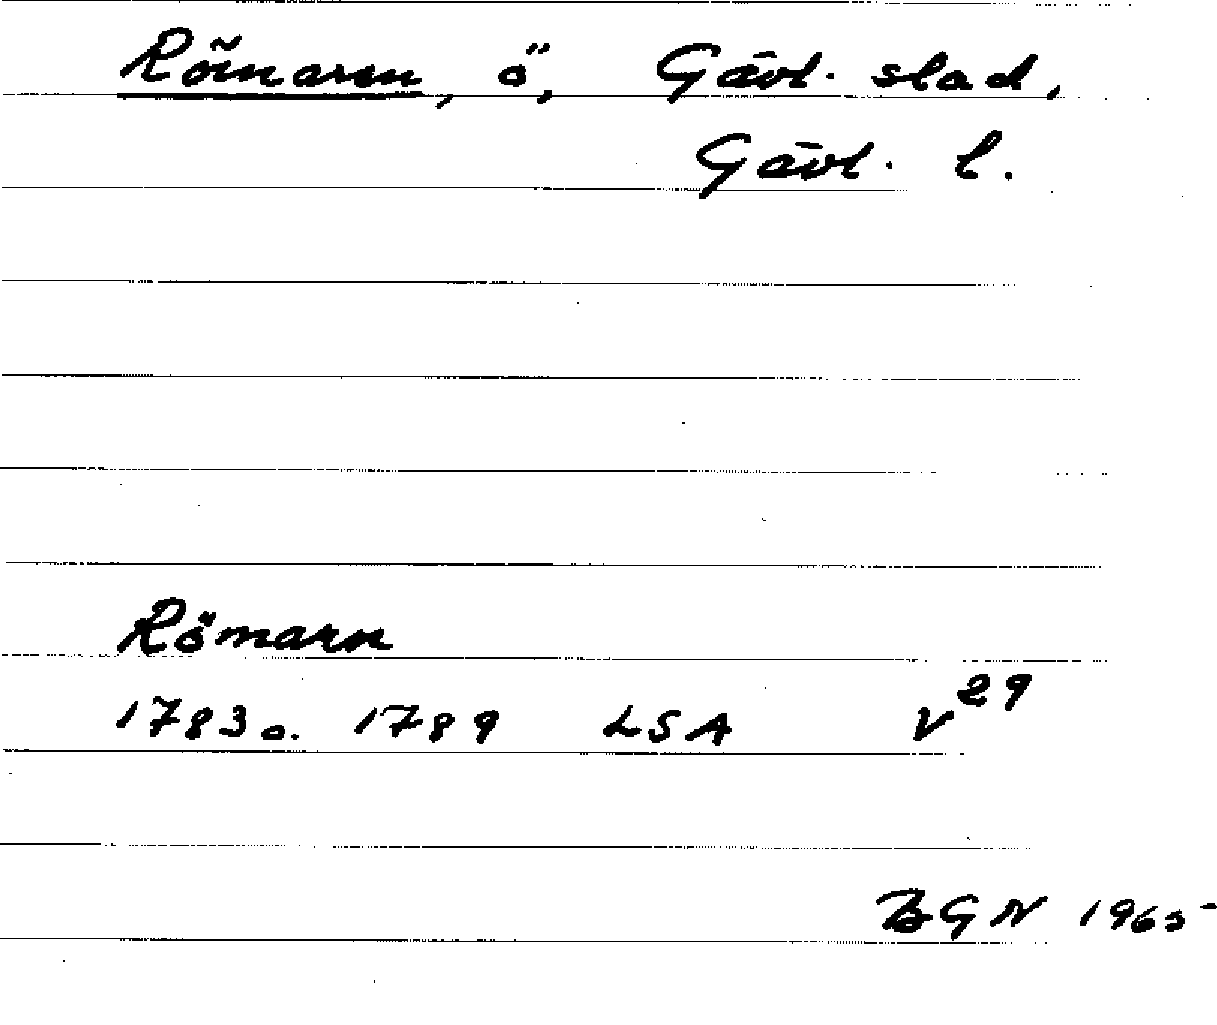 Römaren, ö, Gävl. stad,
Gävl. l.
Römarn
1783 o. 1789 LSA V29
BGN 1965